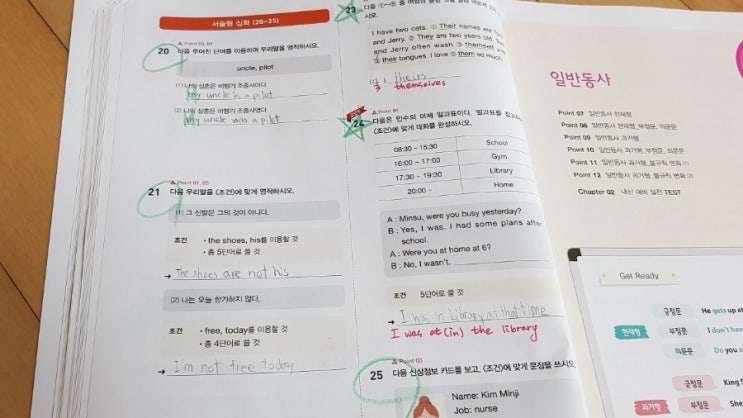 서술형 심화 (20~25)
Point 03, 04
20 다음 주어진 단어를 이용하여 우리말을 영작하시오.
uncle, pilot
(1) 나의 삼촌은 비행기 조종사이다.
My uncle is a pilot
(2) 나의 삼촌은 비행기 조종사였다.
My uncle was a pilot
Point 01, 03
21 다음 우리말을 <조건>에 맞게 영작하시오.
(1) 그 신발은 그의 것이 아니다.
조건 • the shoes, his를 이용할 것
• 총 5단어로 쓸 것
→ The shoes are not his
(2) 나는 오늘 한가하지 않다.
조건 • free, today를 이용할 것
• 총 4단어로 쓸 것
→ I'm not free today
23
시오.
I have two cats. ① Their names are
and Jerry. ② They are two years old.
and Jerry often wash ③ themself
④ their tongues. I love ⑤ them so much.
theirs
3 themselves
Point 04
24 다음은 민수의 어제 일과표이다. 일과표를 참고하
<조건>에 맞게 대화를 완성하시오.
08:30 ~ 15:30 School
16:00 ~ 17:00 Gym
17:30 ~ 19:30 Library
20:00 ~ Home
A : Minsu, were you busy yesterday?
B : Yes, I was. I had some plans after
school.
A : Were you at home at 6?
B : No, I wasn't.
조건 5단어로 쓸 것
→ I was in Library at that time
I was at (in) the library
Point 03
25 다음 신상정보 카드를 보고, <조건>에 맞게 문장을 쓰시오
Name: Kim Minji
Job: nurse
일반동사
Point 07 일반동사 현재형
Point 08 일반동사 현재형_부정문, 의문문
Point 09 일반동사 과거형
Point 10 일반동사 과거형_부정문, 의문문
Point 11 일반동사 과거형_불규칙 변화 (1)
Point 12 일반동사 과거형_불규칙 변화 (2)
Chapter 02 내신 대비 실전 TEST
Get Ready
긍정문 He gets up at
현재형 부정문 I don't hav
의문문 Do you
긍정문 King
과거형 부정문 She